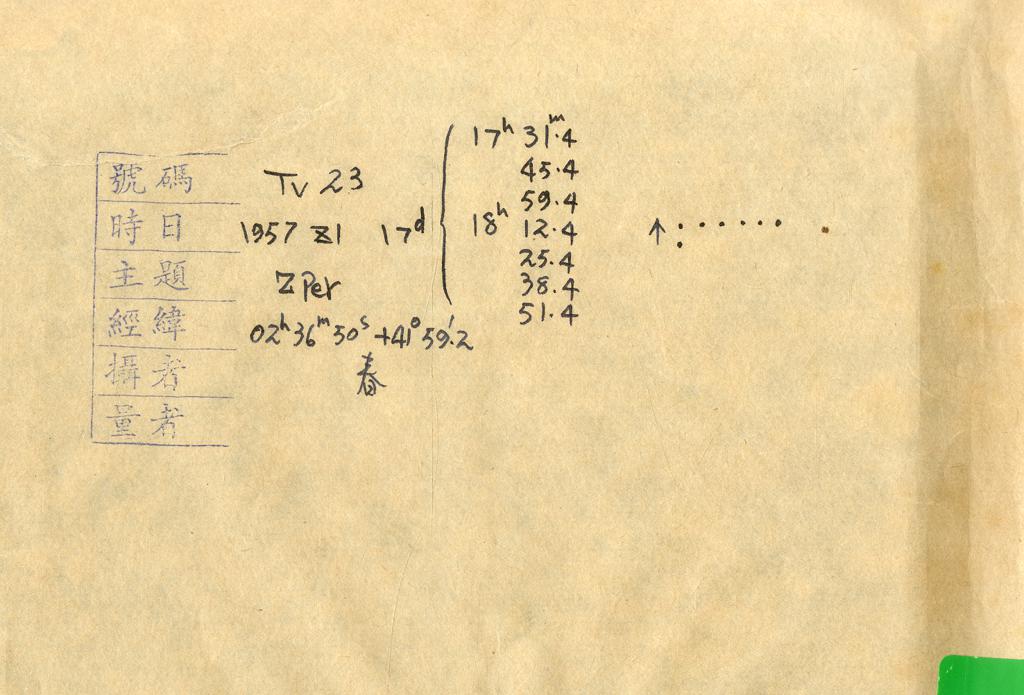 號碼 Tv 23
時日 1957 XI 17ᵈ
17ʰ 31ᵐ.4
45.4
59.4
18ʰ 12.4
25.4
38.4
51.4
主題 Z Per
經緯 02ʰ36ᵐ50ˢ +41°59'.2
攝者 春
量者